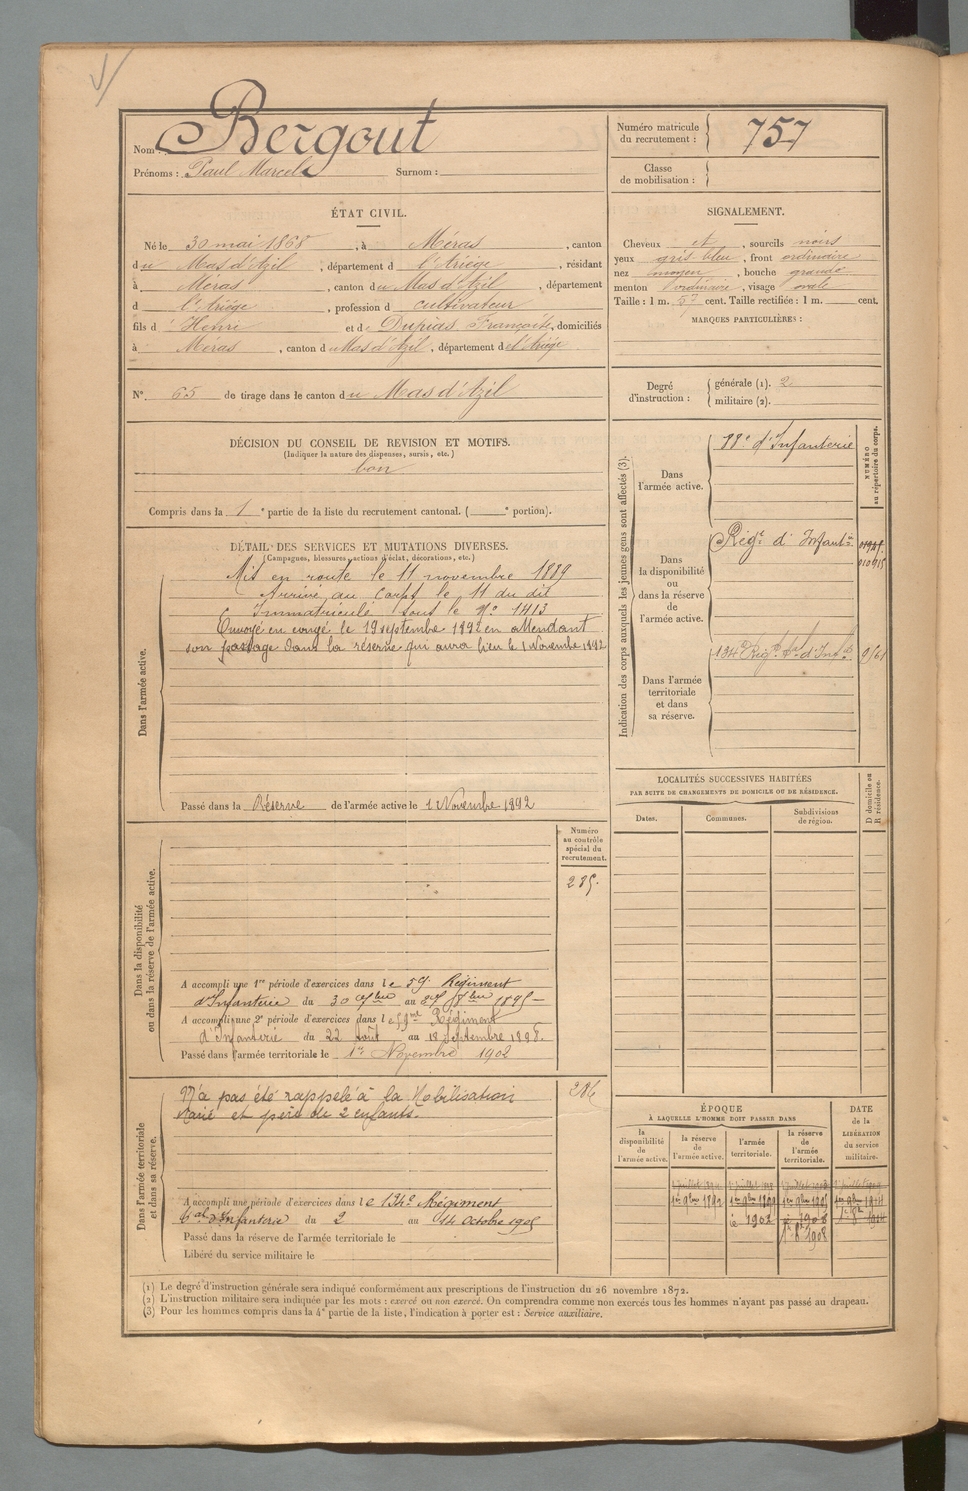 Nom : Bergout
Prénoms : Paul Marcel Surnom :
Numéro matricule du recrutement : 757
Classe de mobilisation :
ÉTAT CIVIL.
Né le 30 mai 1868, à Méras, canton
du Mas d'Azil, département d l'Ariège, résidant
à Méras, canton du Mas d'Azil, département
d l'Ariège, profession d cultivateur
fils d Henri et de Dupias Françoise, domiciliés
à Méras, canton du Mas d'Azil, département de l'Ariège
N° 65 de tirage dans le canton du Mas d'Azil
SIGNALEMENT.
Cheveux et, sourcils noirs
yeux gris bleu, front ordinaire
nez moyen, bouche grande
menton ordinaire, visage ovale
Taille : 1 m. 57 cent. Taille rectifiée : 1 m. cent.
MARQUES PARTICULIÈRES :
Degré d'instruction : générale (1). 2
militaire (2).
DÉCISION DU CONSEIL DE REVISION ET MOTIFS.
(Indiquer la nature des dispenses, sursis, etc.)
bon
Compris dans la 1e partie de la liste du recrutement cantonal. ( e portion).
DÉTAIL DES SERVICES ET MUTATIONS DIVERSES.
(Campagnes, blessures, actions d'éclat, décorations, etc.)
Dans l'armée active.
Mis en route le 11 novembre 1889
Arrivé au Corps le 11 du dit
Immatriculé sous le N° 1413
Envoyé en congé le 19 septembre 1892 en attendant
son passage dans la réserve qui aura lieu le 1 Novembre 1892
Passé dans la Réserve de l'armée active le 1 Novembre 1892
Indication des corps auxquels les jeunes gens sont affectés (3).
NUMÉRO au répertoire du corps.
Dans l'armée active.
d'Infanterie
Dans la disponibilité ou dans la réserve de l'armée active.
Régt d'Infant
Dans l'armée territoriale et dans sa réserve.
134e Régt d'Inf
LOCALITÉS SUCCESSIVES HABITÉES
PAR SUITE DE CHANGEMENTS DE DOMICILE OU DE RÉSIDENCE.
Dates. Communes. Subdivisions de région. D domicile ou R résidence.
Dans la disponibilité ou dans la réserve de l'armée active.
Numéro au contrôle spécial du recrutement.
285.
A accompli une 1re période d'exercices dans le 59e Régiment
d'Infanterie du 30 au 1895
A accompli une 2e période d'exercices dans le 59me Régiment
d'Infanterie du 22 août au 18 Septembre 1898.
Passé dans l'armée territoriale le 1er Novembre 1902
Dans l'armée territoriale et dans sa réserve.
286
N'a pas été rappelé à la Mobilisation
Marié et père de 2 enfants.
A accompli une période d'exercices dans le 134e Régiment
tal d'Infanterie du 2 au 14 octobre 1905
Passé dans la réserve de l'armée territoriale le
Libéré du service militaire le
ÉPOQUE
À LAQUELLE L'HOMME DOIT PASSER DANS
la disponibilité de l'armée active.
la réserve de l'armée active.
l'armée territoriale.
la réserve de l'armée territoriale.
DATE de la LIBÉRATION du service militaire.
1er 9bre 1892
1902
1908
(1) Le degré d'instruction générale sera indiqué conformément aux prescriptions de l'instruction du 26 novembre 1872.
(2) L'instruction militaire sera indiquée par les mots : exercé ou non exercé. On comprendra comme non exercés tous les hommes n'ayant pas passé au drapeau.
(3) Pour les hommes compris dans la 4e partie de la liste, l'indication à porter est : Service auxiliaire.